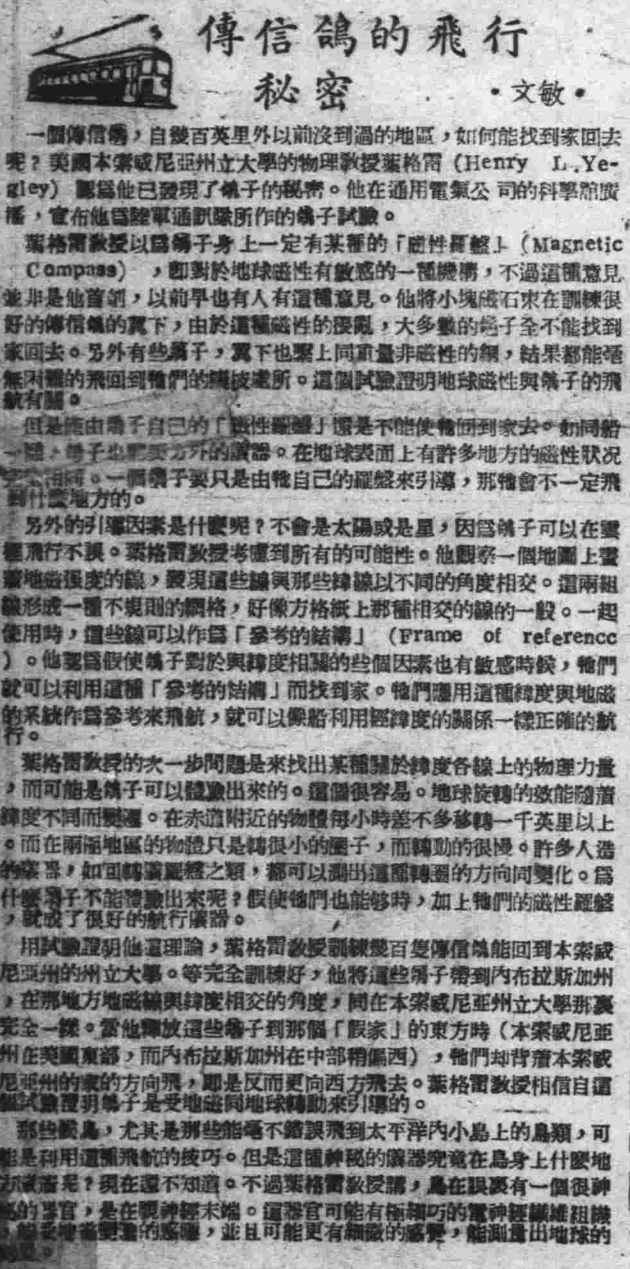 傳信鴿的飛行
秘密
・文敏・
一個傳信鴿，自幾百英里外以前沒到過的地區，如何能找到家回去
呢？美國本索威尼亞州立大學的物理敎授葉格雷（Henry L.Ye-
gley）認爲他已發現了鴿子的秘密。他在通用電氣公司的科學舘廣
播，宣布他爲陸軍通訊隊所作的鴿子試驗。
葉格雷敎授以爲鴿子身上一定有某種的「磁性羅盤」（Magnetic
Compass），卽對於地球磁性有敏感的一種機構，不過這種意見
並非是他首創，以前早也有人有這種意見。他將小塊磁石束在訓練很
好的傳信鴿的翼下，由於這種磁性的擾亂，大多數的鴿子全不能找到
家回去。另外有些鴿子，翼下也繫上同重量非磁性的銅，結果都能毫
無困難的飛回到牠們的棲技處所。這個試驗證明地球磁性與鴿子的飛
航有關。
但是應由鴿子自己的「磁性羅盤」還是不能使牠回到家去。如同船
一樣，鴿子也需要另外的儀器。在地球表面上有許多地方的磁性狀况
完全相同。一個鴿子要只是由牠自己的羅盤來引導，那牠會不一定飛
到什麼地方的。
另外的引導因素是什麼呢？不會是太陽或是星，因爲鴿子可以在雲
裡飛行不誤。葉格雷敎授考慮到所有的可能性。他觀察一個地圖上畫
着地磁强度的線，發現這些線與那些緯線以不同的角度相交。這兩組
線形成一種不規則的網格，好像方格紙上那種相交的線的一般。一起
使用時，這些線可以作爲「參考的結構」（Frame of reference
）。他認爲假使鴿子對於與緯度相關的些個因素也有敏感時候，牠們
就可以利用這種「參考的結構」而找到家。牠們應用這種緯度與地磁
的系統作爲參考來飛航，就可以像船利用經緯度的關係一樣正確的航
行。
葉格雷敎授的次一步問題是來找出某種關於緯度各線上的物理力量
，而可能是鴿子可以體驗出來的。這個很容易。地球旋轉的效能隨着
緯度不同而變遷。在赤道附近的物體每小時差不多移轉一千英里以上
。而在兩極地區的物體只是轉很小的圈子，而轉動的很慢。許多人造
的儀器，如回轉儀羅盤之類，都可以測出這種轉圈的方向同變化。爲
什麼鴿子不能體驗出來呢？假使牠們也能够時，加上牠們的磁性羅盤
，就成了很好的航行儀器。
用試驗證明他這理論，葉格雷敎授訓練幾百隻傳信鴿能回到本索威
尼亞州的州立大學。等完全訓練好，他將這些鴿子帶到內布拉斯加州
，在那地方地磁線與緯度相交的角度，同在本索威尼亞州立大學那裏
完全一樣。當他釋放這些鴿子到那個「假家」的東方時（本索威尼亞
州在美國東部，而內布拉斯加州在中部稍偏西），牠們却背着本索威
尼亞州的家的方向飛，卽是反而更向西方飛去。葉格雷敎授相信自這
個試驗證明鴿子是受地磁同地球轉動來引導的。
那些候鳥，尤其是那些能毫不錯誤飛到太平洋內小島上的鳥類，可
能是利用這種飛航的技巧。但是這個神秘的儀器究竟在鳥身上什麼地
方藏着呢？現在還不知道。不過葉格雷敎授講，鳥在眼裏有一個很神
的器官，是在視神經末端。這器官可能有極細巧的電神經纖維組織
，並且可能更有細微的感覺，能測量出地球的